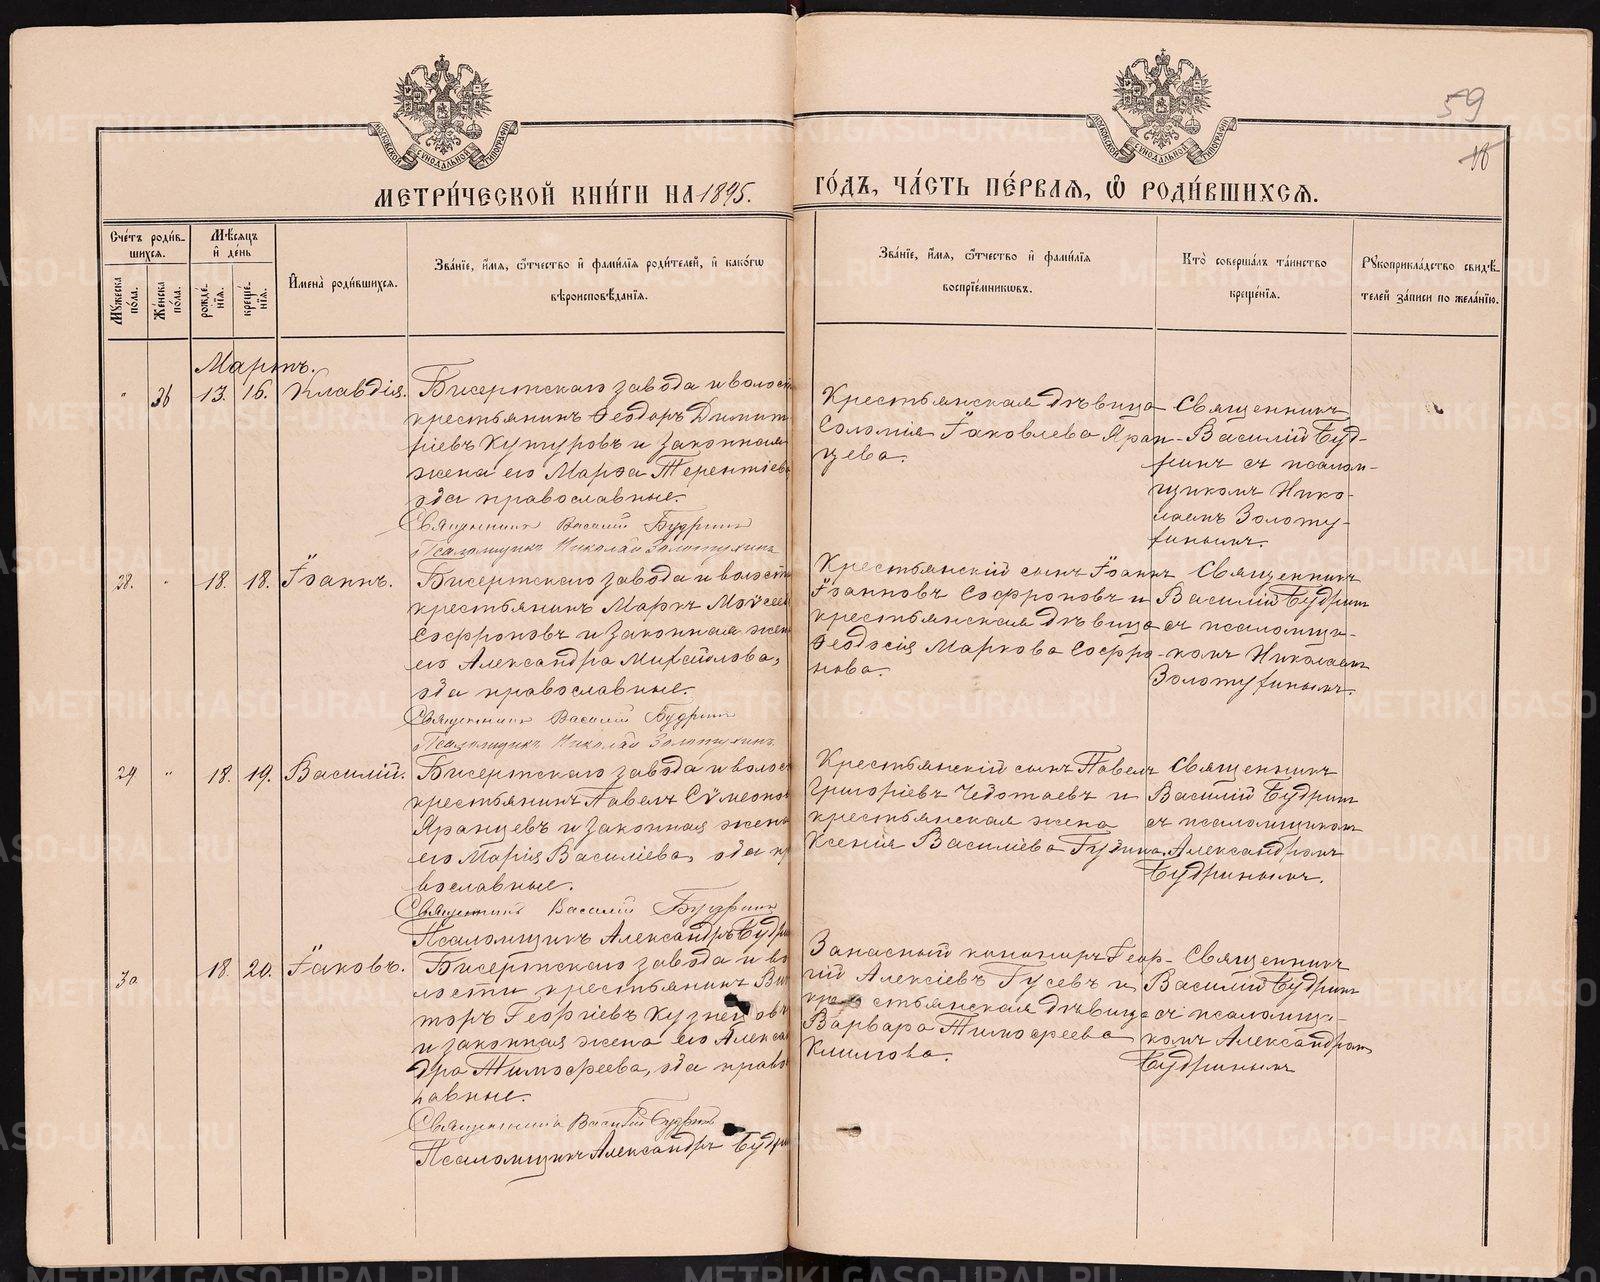 59
18
МОСКОВСКОЙ СѴНОДАЛЬНОЙ ТИПОГРАФІИ
МОСКОВСКОЙ СѴНОДАЛЬНОЙ ТИПОГРАФІИ
МЕТРИ́ЧЕСКОЙ КНИ́ГИ НА 1895.
ГО́ДЪ, ЧА́СТЬ ПЕ́РВАѦ, Ѽ РОДИ́ВШИХСѦ.
Сче́тъ роди́в-
шихсѧ.
Мѣ́сѧцъ
и҆ де́нь
Мꙋ́жеска по́ла.
Же́нска по́ла.
рожде́-
нїѧ.
креще́-
нїѧ.
И҆мена̀ роди́вшихсѧ.
Зва́нїе, и҆́мѧ, ѻ҆́тчество и҆ фами́лїѧ роди́телей, и҆ како́гѡ
вѣроисповѣ́данїѧ.
Зва́нїе, и҆́мѧ, ѻ҆́тчество и҆ фами́лїѧ
воспрїе́мникѡвъ.
Кто̀ соверша́лъ та́инство
креще́нїѧ.
Рꙋкоприкла́дство свидѣ́-
телей за́писи по жела́нїю.
Мартъ.
" 26 13. 16. Клавдія.
Бисертскаго завода и волост
крестьянинъ Ѳеодоръ Димит
ріевъ Кутуровъ и законная
жена его Марѳа Терентіев
оба православные.
Священникъ Василій Будринъ
Псаломщикъ Николай Золотухинъ
Крестьянская дѣвица
Соломія Іаковлева Яран-
цева.
Священникъ
Василій Буд-
ринъ съ псалом-
щикомъ Нико-
лаемъ Золоту-
хинымъ.
28. " 18. 18. Іоаннъ.
Бисертскаго завода и волости
крестьянинъ Маркъ Моѵсеев
Софроновъ и законная жен
его Александра Михайлова,
оба православные.
Священникъ Василій Будринъ
Псаломщикъ Николай Золотухинъ
Крестьянскій сынъ Іоаннъ
Іоанновъ Софроновъ и
крестьянская дѣвица
Ѳеодосія Маркова Софро-
нова.
Священникъ
Василій Будринъ
съ псаломщи-
комъ Николаемъ
Золотухинымъ.
29 " 18. 19. Василій.
Бисертскаго завода и волос
крестьянинъ Павелъ Сѵмеонов
Яранцевъ и законная жена
его Марія Василіева, оба пр
вославные.
Священникъ Василій Будринъ
Псаломщикъ Александръ Будри
Крестьянскій сынъ Павелъ
Григоріевъ Чедотаевъ и
крестьянская жена
Ксенія Василіева Гудина.
Священникъ
Василій Будринъ
съ псаломщикомъ
Александромъ
Будринымъ.
30 18. 20. Іаковъ.
Бисертскаго завода и во
лости крестьянинъ Вик
торъ Георгіевъ Кузнецовъ
и законная жена его Алекса
дра Тимофеева, оба правос
лавные.
Священникъ Василій Будринъ
Псаломщикъ Александръ Будри
Запасный канониръ Геор-
гій Алексіевъ Гусевъ и
крестьянская дѣвица
Варвара Тимофеева
Климова.
Священникъ
Василій Будринъ
съ псаломщи-
комъ Александромъ
Будринымъ
METRIKI.GASO-URAL.RU